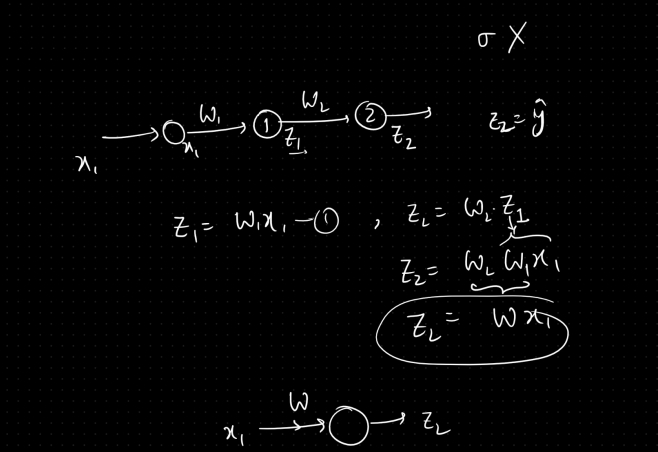 σ X
x₁ W₁ x₁ ① W₂ Z₁ ② Z₂
z₂ = ŷ
Z₁ = W₁x₁ – ① , Z₂ = W₂ · Z₁
Z₂ = W₂ W₁x₁
Z₂ = W x₁
x₁ W Z₂